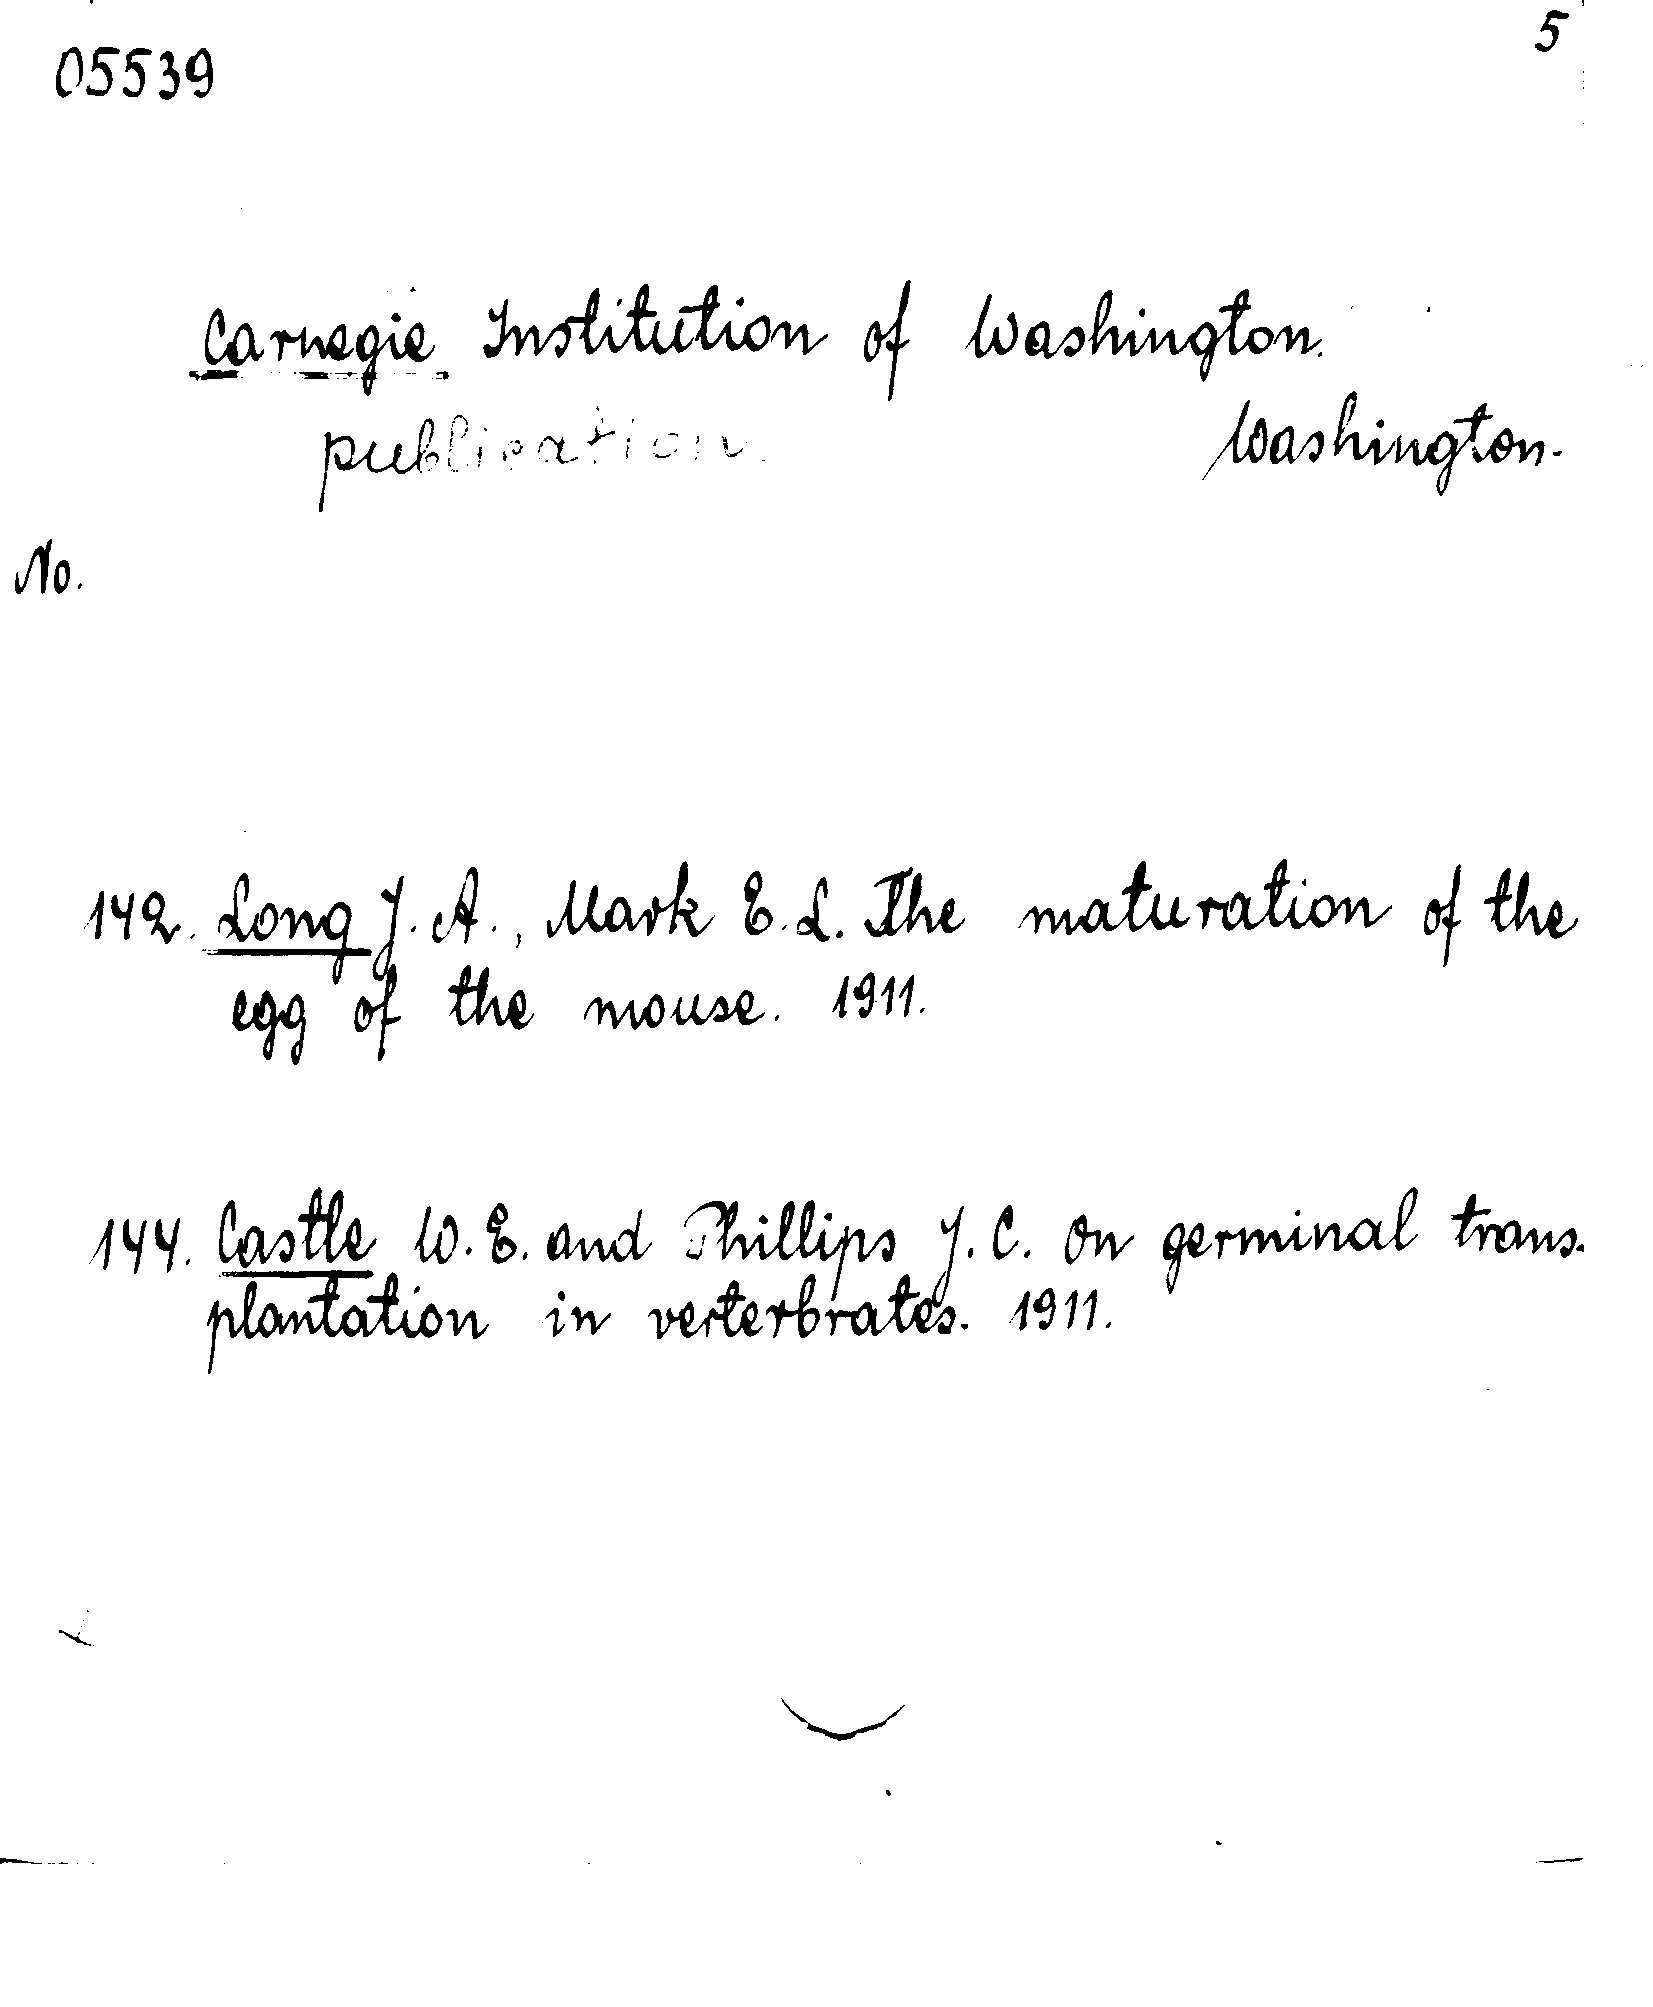 5
05539
Carnegie Institution of Washington.
publication. Washington.
No.
142. Long J. A., Mark E. L. The maturation of the
egg of the mouse. 1911.
144. Castle W. E. and Phillips J. C. On germinal trans-
plantation in verterbrates. 1911.